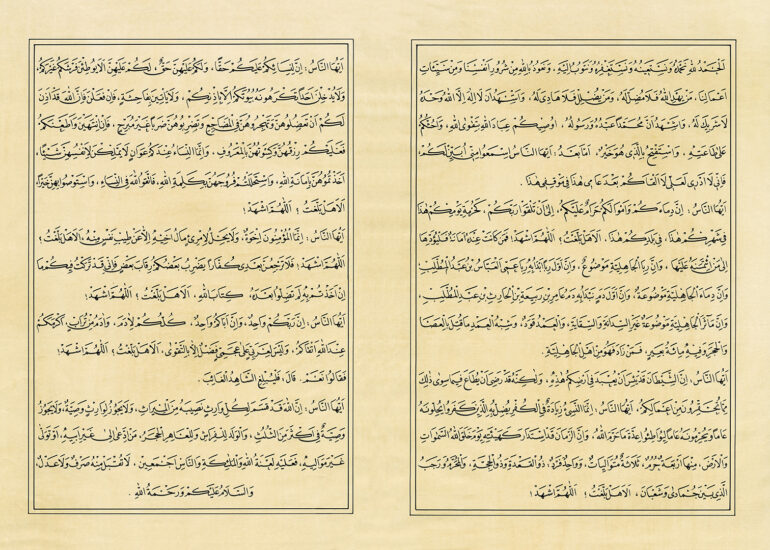 الحمد لله نحمده ونستعينه ونستغفره ونتوب إليه، ونعوذ بالله من شرور أنفسنا ومن سيئات
أعمالنا، من يهد الله فلا مضل له، ومن يضلل فلا هادي له، وأشهد أن لا إله إلا الله وحده
لا شريك له، وأشهد أن محمدا عبده ورسوله، أوصيكم عباد الله بتقوى الله، وأحثكم
على طاعته، وأستفتح بالذي هو خير، أما بعد: أيها الناس اسمعوا مني أبين لكم،
فإني لا أدري لعلي لا ألقاكم بعد عامي هذا في موقفي هذا.
أيها الناس: إن دماءكم وأموالكم حرام عليكم، إلى أن تلقوا ربكم، كحرمة يومكم هذا
في شهركم هذا، في بلدكم هذا، ألا هل بلغت؛ اللهم اشهد؛ فمن كانت عنده أمانة فليؤدها
إلى من ائتمنه عليها، وإن ربا الجاهلية موضوع، وإن أول ربا أبدأ به ربا عمي العباس بن عبد المطلب،
وإن دماء الجاهلية موضوعة، وإن أول دم نبدأ به دم عامر بن ربيعة بن الحارث بن عبد المطلب،
وإن مآثر الجاهلية موضوعة غير السدانة والسقاية، والعمد قود، وشبه العمد ما قتل بالعصا
والحجر وفيه مائة بعير، فمن زاد فهو من أهل الجاهلية.
أيها الناس: إن الشيطان قد يئس أن يعبد في أرضكم هذه، ولكنه قد رضي أن يطاع فيما سوى ذلك
مما تحقرون من أعمالكم، أيها الناس: إنما النسيء زيادة في الكفر يضل به الذين كفروا يحلونه
عاما ويحرمونه عاما ليواطئوا عدة ما حرم الله، وإن الزمان قد استدار كهيئته يوم خلق الله السموات
والأرض، منها أربعة حرم، ثلاثة متواليات، وواحد فرد، ذو القعدة وذو الحجة، والمحرم ورجب
الذي بين جمادى وشعبان، ألا هل بلغت؛ اللهم اشهد؛
أيها الناس: إن لنسائكم عليكم حقا، ولكم عليهن حق، لكم عليهن ألا يوطئن فرشكم غيركم،
ولا يدخلن أحدا تكرهونه بيوتكم إلا بإذنكم، ولا يأتين بفاحشة، فإن فعلن فإن الله قد أذن
لكم أن تعضلوهن وتهجروهن في المضاجع وتضربوهن ضربا غير مبرح، فإن انتهين وأطعنكم
فعليكم رزقهن وكسوتهن بالمعروف، وإنما النساء عندكم عوان لا يملكن لأنفسهن شيئا،
أخذتموهن بأمانة الله، واستحللتم فروجهن بكلمة الله، فاتقوا الله في النساء، واستوصوا بهن خيرا،
ألا هل بلغت؛ اللهم اشهد؛
أيها الناس: إنما المؤمنون إخوة، ولا يحل لامرئ مال أخيه إلا عن طيب نفس منه، ألا هل بلغت؛
اللهم اشهد؛ فلا ترجعن بعدي كفارا يضرب بعضكم رقاب بعض فإني قد تركت فيكم ما
إن أخذتم به لم تضلوا بعده، كتاب الله، ألا هل بلغت؛ اللهم اشهد؛
أيها الناس: إن ربكم واحد، وإن أباكم واحد، كلكم لآدم، وآدم من تراب، أكرمكم
عند الله أتقاكم، وليس لعربي على عجمي فضل إلا بالتقوى، ألا هل بلغت؛ اللهم اشهد؛
فقالوا نعم. قال، فليبلغ الشاهد الغائب.
أيها الناس: إن الله قد قسم لكل وارث نصيبه من الميراث، ولا يجوز لوارث وصية، ولا يجوز
وصية في أكثر من الثلث، والولد للفراش وللعاهر الحجر، من ادعى إلى غير أبيه، أو تولى
غير مواليه، فعليه لعنة الله والملئكة والناس أجمعين، لا يقبل منه صرف ولا عدل،
والسلام عليكم ورحمة الله.